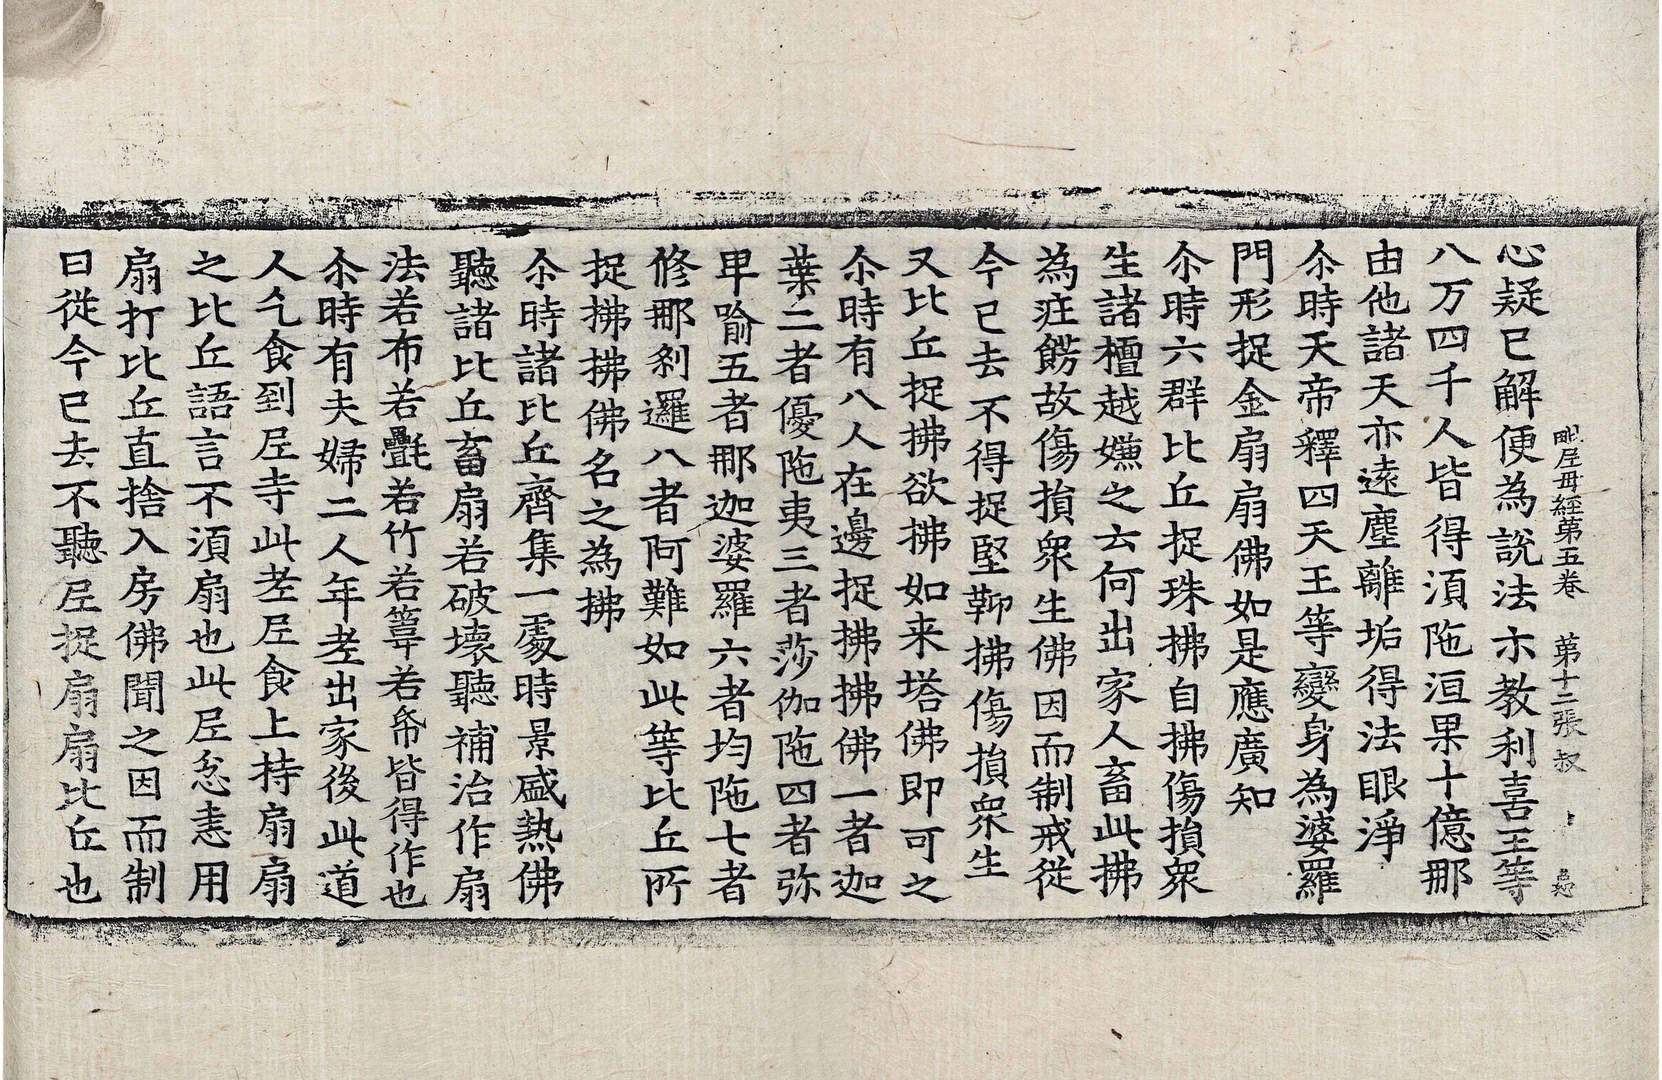 毗尼母經第五卷　第十二張　叔
心疑已解便為說法示教利喜王等
八万四千人皆得湏陁洹果十億那
由他諸天亦遠塵離垢得法眼淨
尒時天帝釋四天王等變身為婆羅
門形捉金扇扇佛如是應廣知
尒時六群比丘捉珠拂自拂傷損衆
生諸檀越嫌之去何出家人畜此拂
為疰餝故傷損衆生佛因而制戒從
今已去不得捉堅鞕拂傷損衆生
又比丘捉拂欲拂如来塔佛即可之
尒時有八人在邊捉拂拂佛一者迦
葉二者優陁夷三者莎伽陁四者弥
卑喻五者那迦婆羅六者均陁七者
修那刹邏八者阿難如此等比丘所
捉拂拂佛名之為拂
尒時諸比丘齊集一處時景盛熱佛
聽諸比丘畜扇若破壞聽補治作扇
法若布若㲲若竹若䈝若帋皆得作也
尒時有夫婦二人年老出家後此道
人乞食到尼寺此老尼食上持扇扇
之比丘語言不湏扇也此尼忿恚用
扇打比丘直捨入房佛聞之因而制
曰從今已去不聽尼捉扇扇比丘也